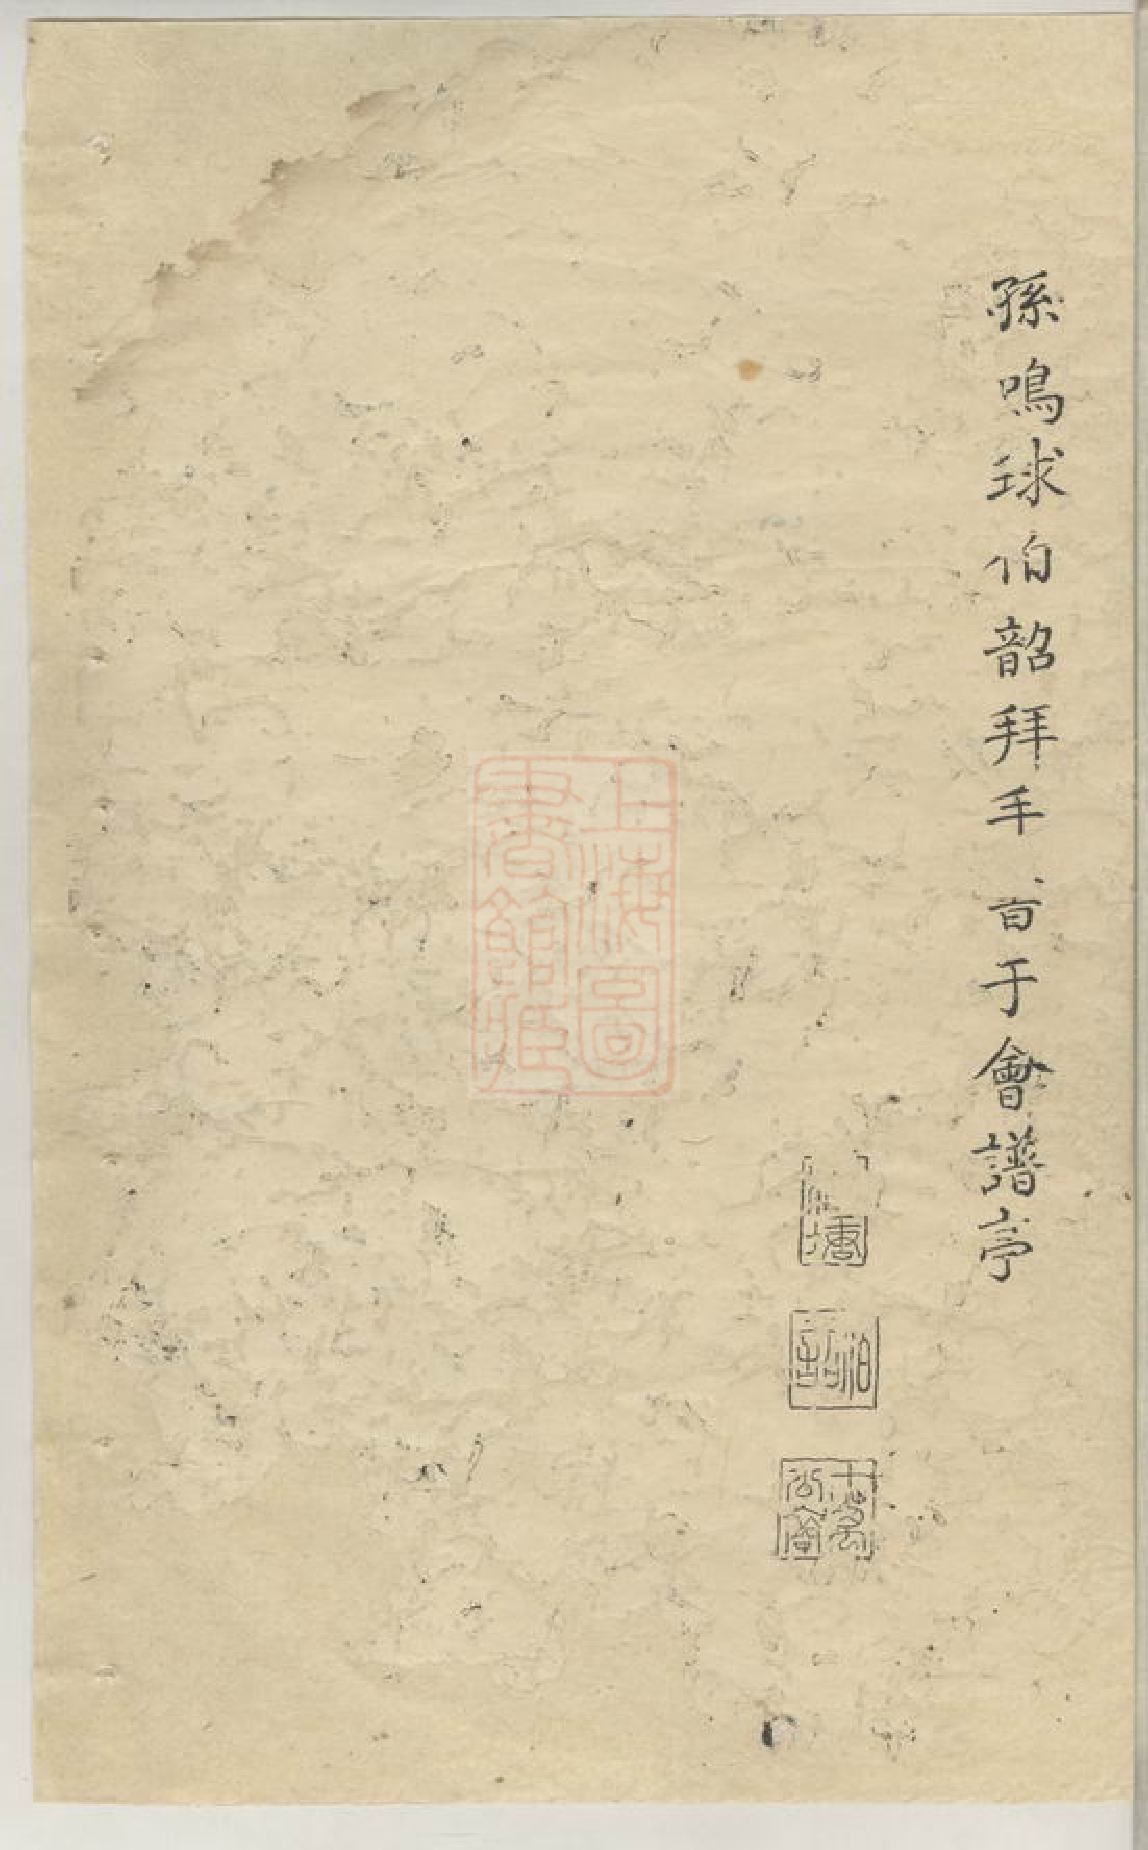 孫鳴球伯韶拜手𩠐于會譜亭
上海圖書館藏
伯韶